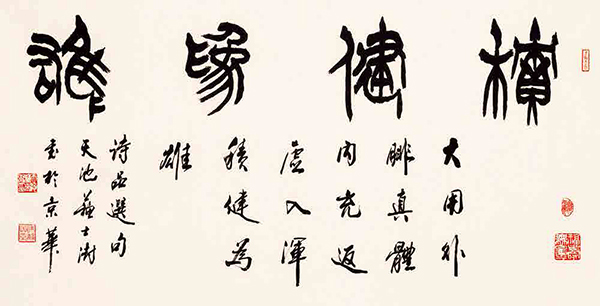 積健為雄
大用外
腓真體
内充返
虛入渾
積健為
雄
詩品選句
天池蘇士澍
書於京華